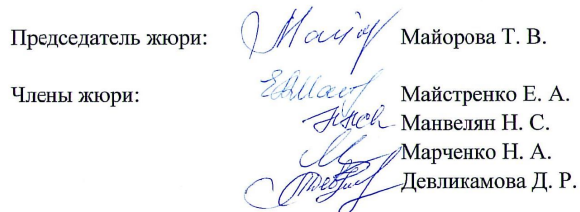 Председатель жюри: Майорова Т. В.
Члены жюри: Майстренко Е. А.
Манвелян Н. С.
Марченко Н. А.
Девликамова Д. Р.